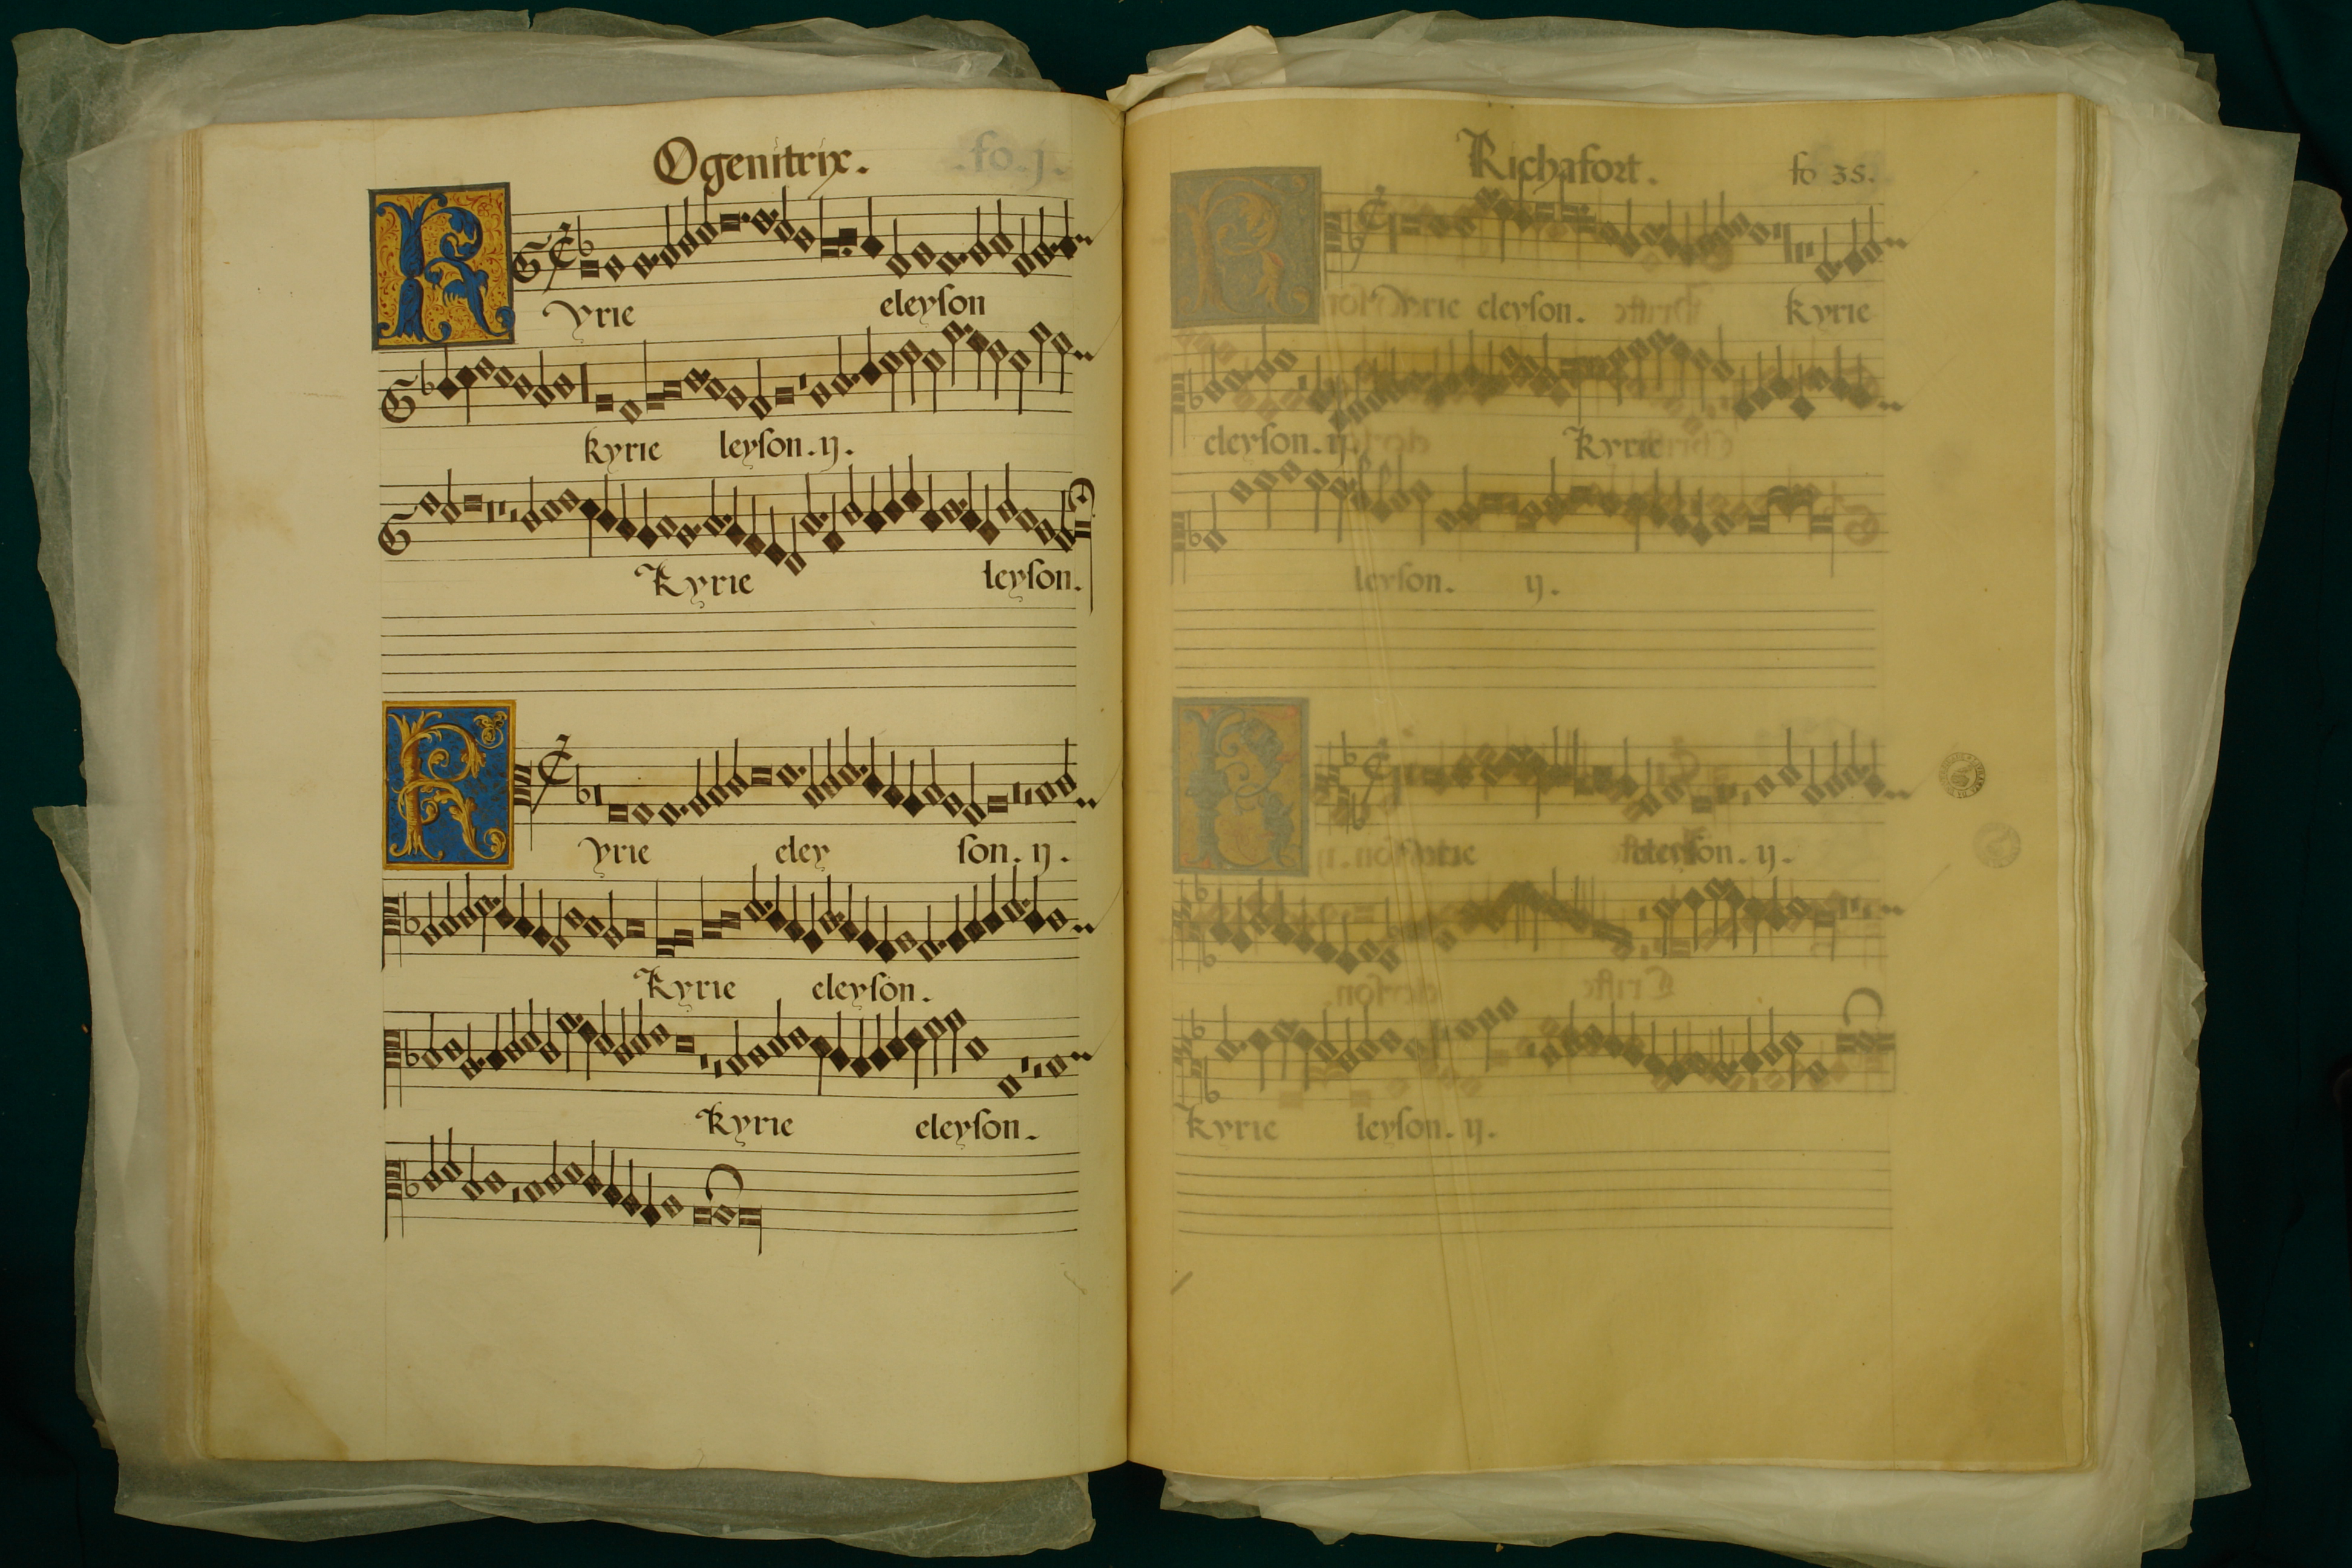 Ogenitrix.
K
yrie eleyſon
kyrie leyſon. ij.
Kyrie leyſon.
K
yrie eley ſon. ij.
Kyrie eleyſon.
Kyrie eleyſon.
Richafort. fo 38.
K
yrie eleyſon. kyrie
eleyſon. ij. Kyrie
leyſon. ij.
K
yrie eleyſon. ij.
Kyrie leyſon. ij.